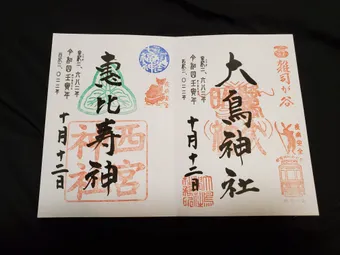 雑司が谷
大鳥神社
皇紀二、六八二年
令和四壬寅年
西暦二、〇二二年
十月十二日
恵比寿神
西宮
神社
皇紀二、六八二年
令和四壬寅年
西暦二、〇二二年
十月十二日